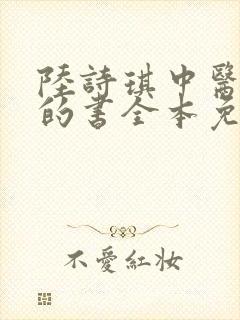 陸詩琪中醫
的書全本免
不愛紅妝